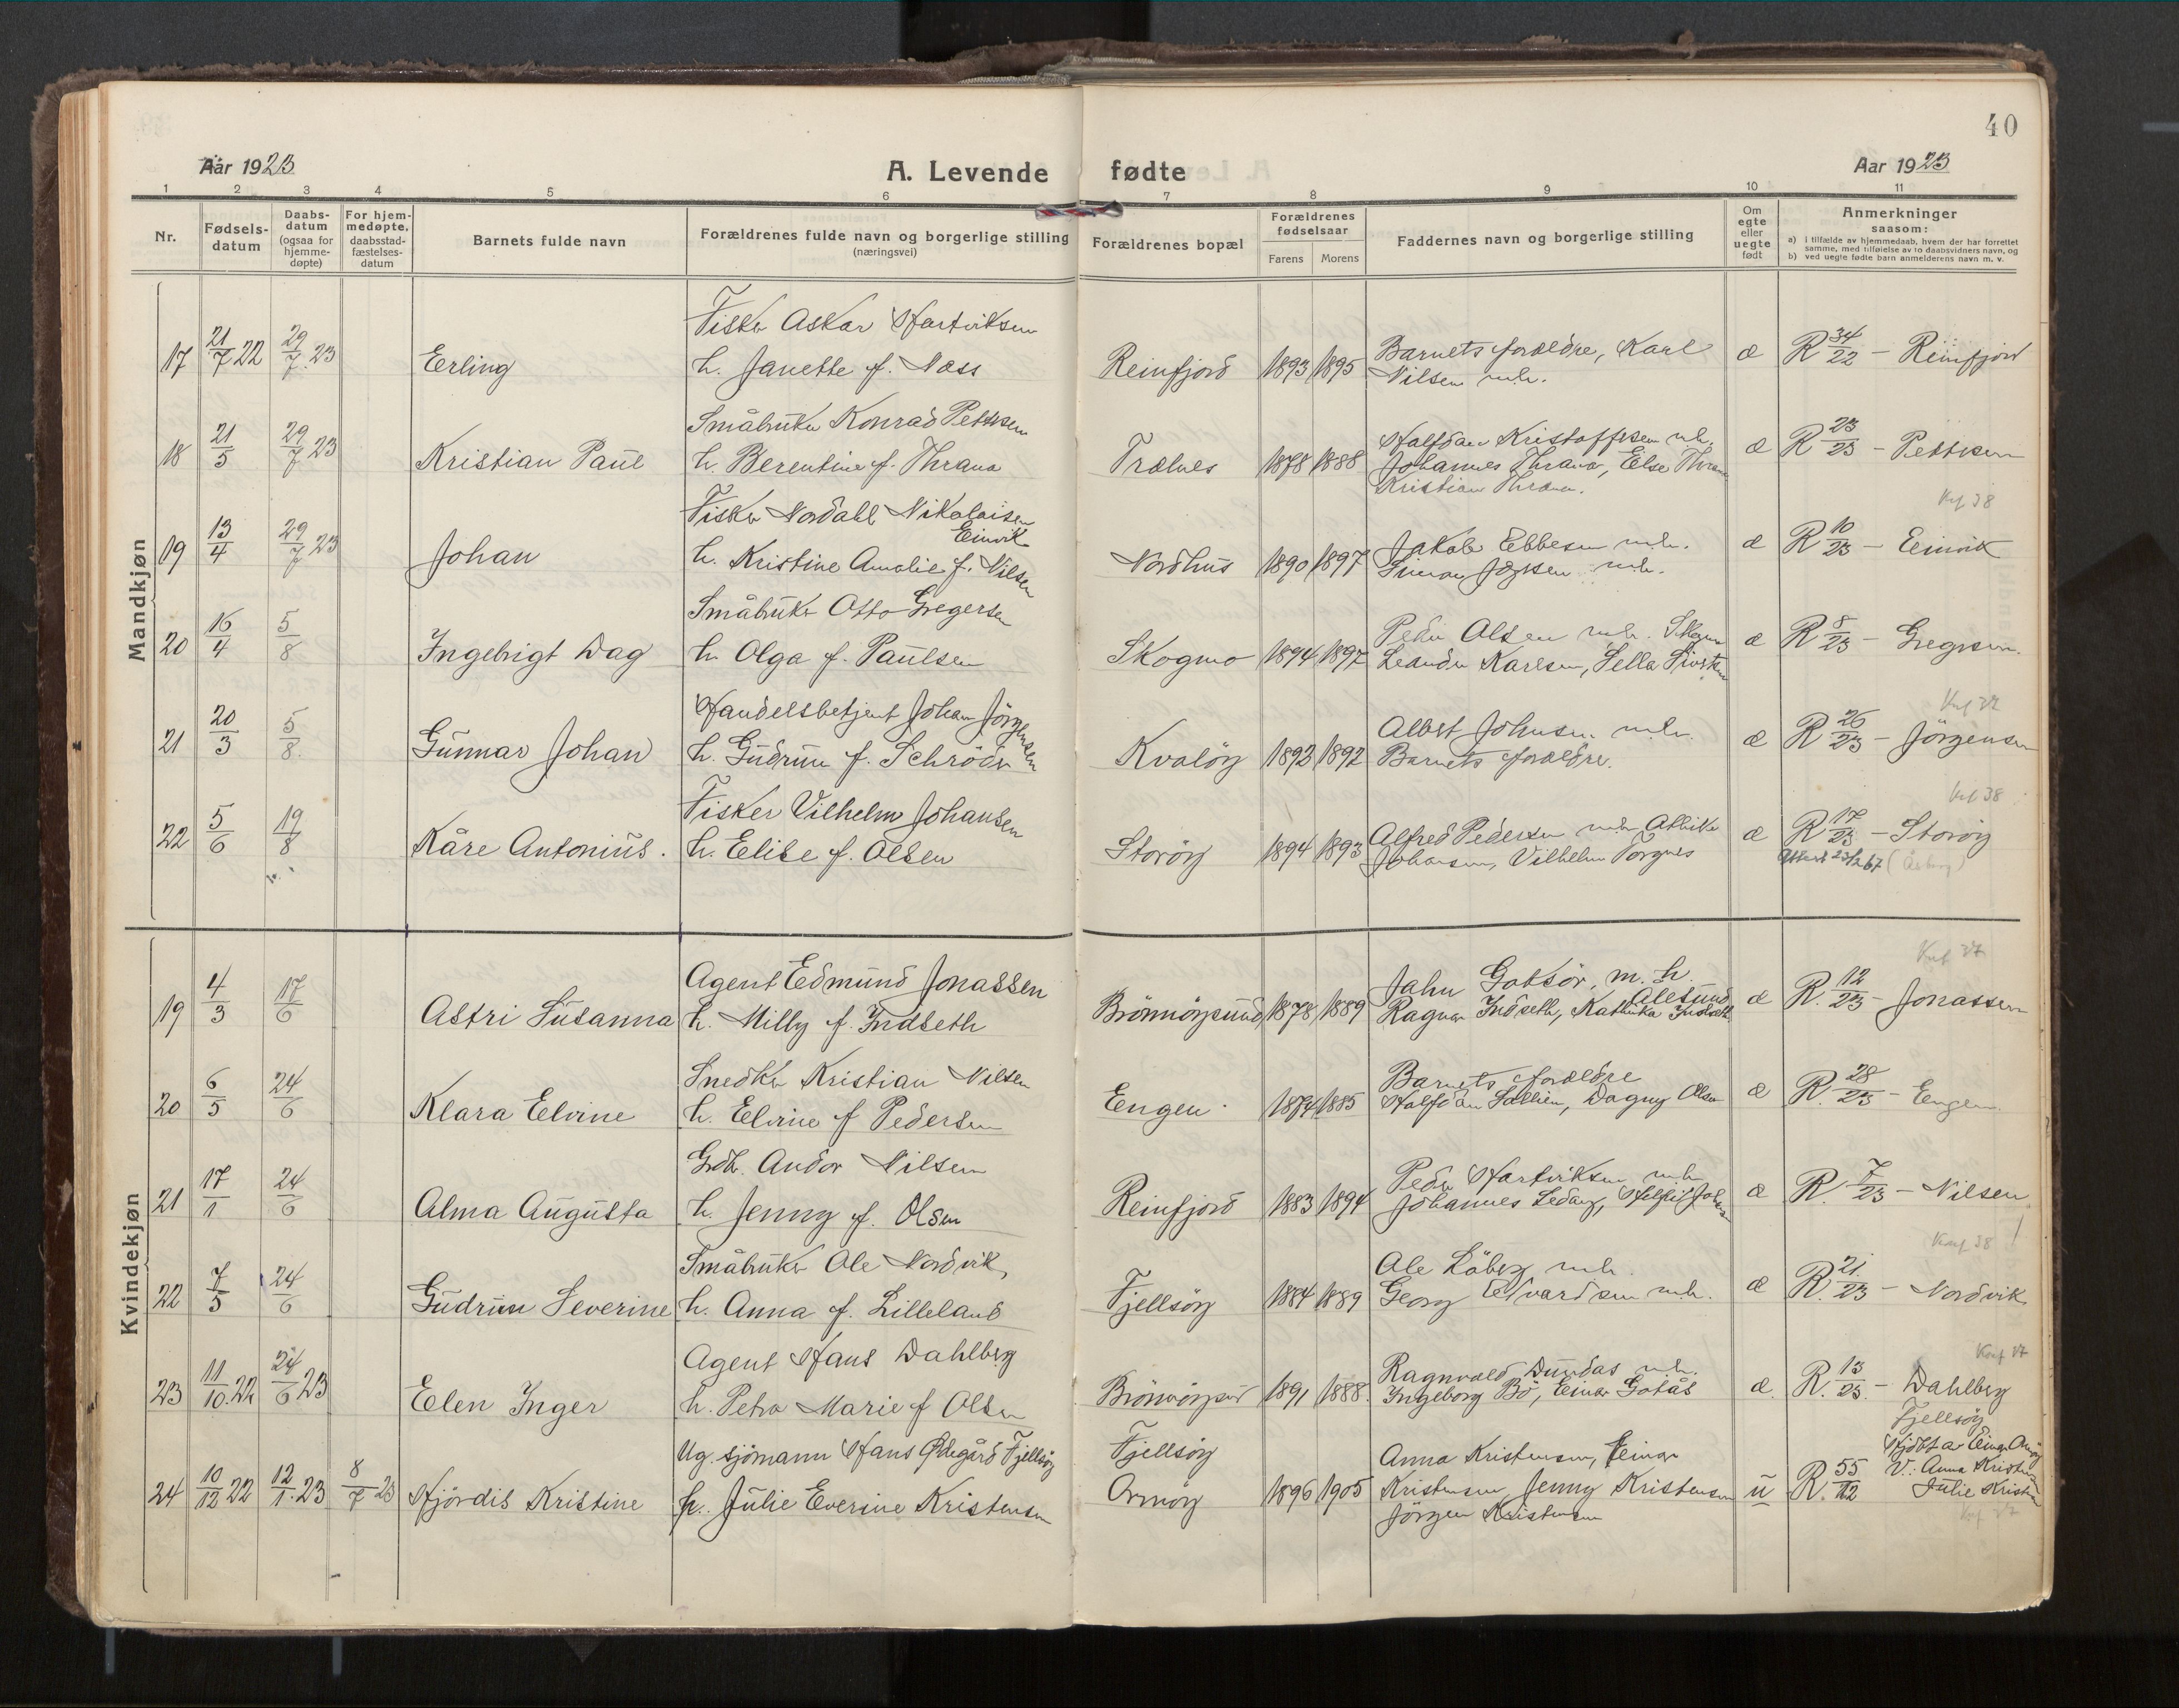 40
Aar 1923
A. Levende fødte
Aar 1923
1 2 3 4 5 6 7 8 9 10 11
Nr.
Fødsels-
datum
Daabs-
datum
(ogsaa for
hjemme-
døpte)
For hjem-
medøpte,
daabsstad-
fæstelses-
datum
Barnets fulde navn
Forældrenes fulde navn og borgerlige stilling
(næringsvei)
Forældrenes bopæl
Forældrenes
fødselsaar
Farens Morens
Faddernes navn og borgerlige stilling
Om
egte
eller
uegte
født
Anmerkninger
saasom:
a) i tilfælde av hjemmedaab, hvem der har forrettet
samme, med tilføielse av to daabsvidners navn, og
b) ved uegte fødte barn anmelderens navn m. v.
Mandkjøn
Fisker Askar Hartviksen
17 21/7 22 29/7. 23 Erling h. Janette f. Næss Reinfjord 1893 1895 Barnets forældre, Karl
Nilsen m.h. æ R 34/22 - Reinfjord
Småbruker Konrad Pettersen
18 21/5 29/7 23 Kristian Paul h. Berentine f. Thrana Trælnes 1878 1888 Halfdan Kristoffersen m.h.
Johannes Thrana, Else Thrana
Kristian Thrana. æ R 23/23 - Pettersen
Fisker Nordahl Nikolaisen
Einvik
Knf 38
19 13/4 29/7 23 Johan h. Kristine Amalie f. Nilsen Nordhus 1890 1897 Jakob Ebbesen m.h.
Simon m.h. æ R 10/23 - Einvik
Småbruker Otto Gregersen
20 16/4 5/8 Ingebrigt Dag h. Olga f. Paulsen Skogmo 1894 1897 Peder Olsen m.h.
Leander Karlsen, Sella æ R 8/23 - Gregersen.
Handelsbetjent Johan Jörgensen
21 20/3 5/8. Gunnar Johan h. Gudrun f. Schröder Kvalöy 1892 1892 Albert Johnsen m.h.
Barnets forældre. æ R 26/23 - Jörgensen
Fisker Vilhelm Johansen
Knf 38
22 5/6 19/8 Kåre Antonius. h. Elise f. Olsen Storöy 1894 1893 Alfred Pedersen m.h.
Johansen, Vilhelm Torgnes æ R 17/23 - Storöy
Attest 23/2 67
Kvindekjøn
Agent Edmund Jonassen
19 4/3 17/6 Astri Susanna h. Milly f. Indseth Brönnöysund 1878 1889 Jahn Gaksör, m.h.
Alesund
Ragnar Indseth, Kathinka Indseth æ R. 12/23 - Jonassen
Snedker Kristian Nilsen
20 6/5 24/6 Klara Elvine h. Elvine f Pedersen Engen 1884 1885 Barnets forældre
Halfdan Sollien, Dagny Olsen æ R. 28/23 - Engen
Grdb. Andor Nilsen
21 17/1 24/6 Alma Augusta h. Jenny f. Olsen Reinfjord 1883 1894 Peder Hartviksen m.h
Johannes Ledang, æ R 7/23 - Nilsen
Småbruker Ole Nordvik,
22 7/5 24/6 Gudrun Severine h. Anna f. Lilleland Fjellsöy 1884 1889 Ole Løberg m.h.
Georg Edvardsen m.h. æ R. 21/23 - Nordvik
Knf 38
Agent Hans Dahlberg
23 11/10. 22 24/6 23 Elen Inger h. Petra Marie f Olsen Brönnöysund 1891 1888. Ragnvald Dundas m.h.
Ingeborg Bö, Einar Gotås æ. R. 13/23. - Dahlberg
Ug. sjömann Hans Ødegård Fjellsöy Fjellsöy
24 10/12 22 12/1. 23 8/7 23 Hjördis Kristine p. Julie Everine Kristensen Ormöy 1896 1905 Anna Kristensen, Einar
Kristensen, Jenny Kristensen
Jörgen Kristensen u R. 55/22
Fjellsöy
Hjdbt av Einar
V.: Anna Kristensen
Julie Kristensen